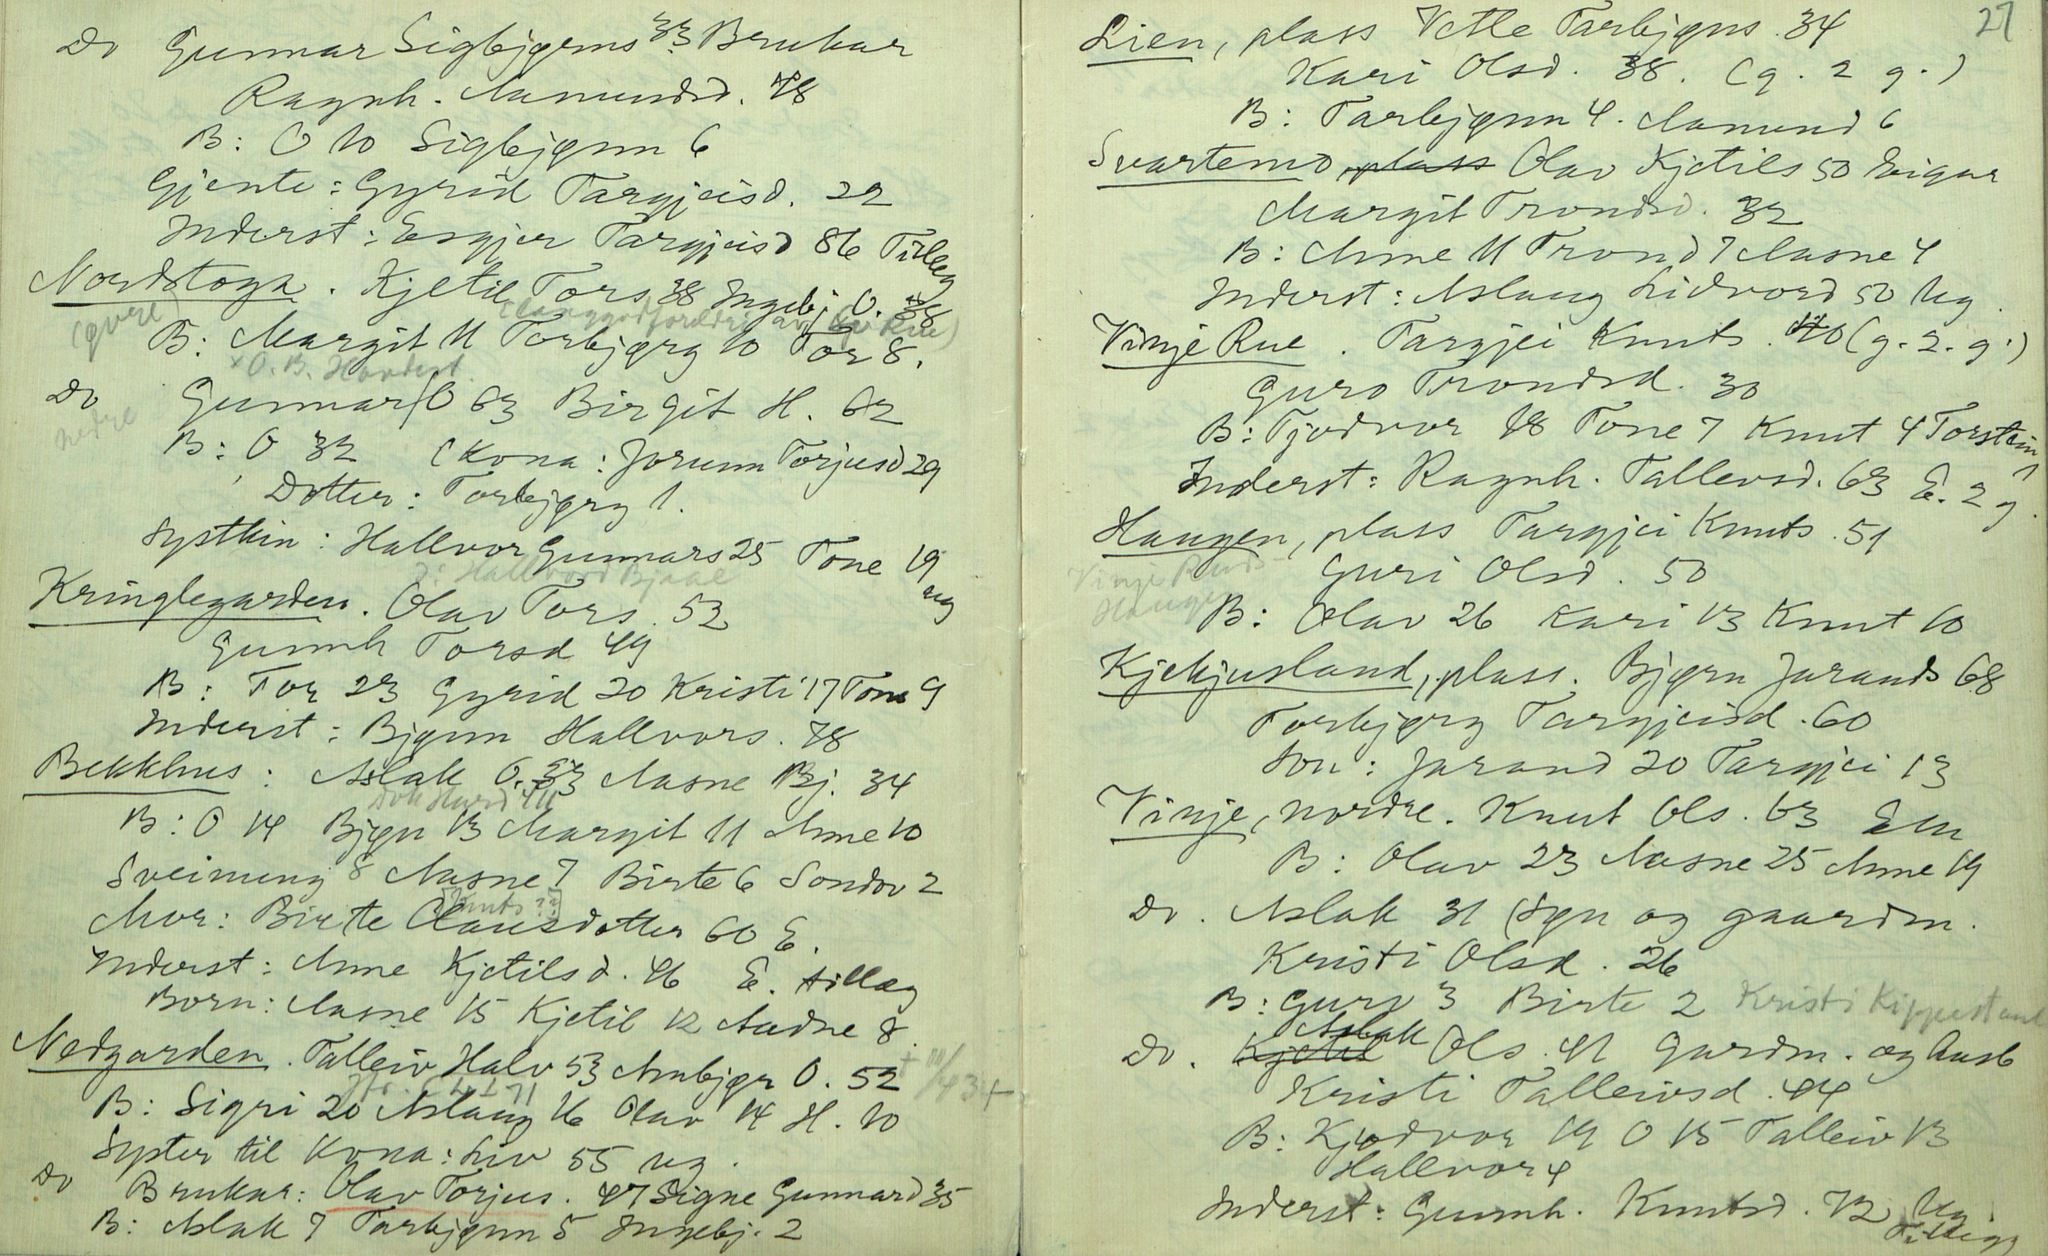 Do Gunnar Sigbjørns 33 Brukar
Ragnh. Aamundsd. 48
B: O 10 Sigbjønn 6
Gjente: Gyrid Targjeisd. 22
Inderst: Esgjer Targjeisd 86 Tillæg
Nordstoga. Kjetil Tors 38 Ingebj O. 38
(øvre)
B: Margit 11 Torbjørg 10 Tor 8.
x O. B. Hovdest.
Do Gunnar O 63 Birgit H. 62
nedre
B: O 32 (Kona: Jorunn Torjusd 29
Dotter: Torbjørg 1.
Systkin: Hallvor Gunnars 25 Tone 19 ug
ɔ: Hallvord Bjaae
Kringlegarden. Olav Tors. 53
Gunnh Torsd 49
B: Tor 23 Gyrid 20 Kristi 17 Tone 9
Inderst: Bjønn Hallvors. 78
Bekkhus: Aslak O. 33 Aasne Bj. 34
B: O 14 Bjøn 13 Margit 11 Anne 10
Sveinung 8 Aasne 7 Birte 6 Sondov 2
[Knuts ??]
Mor: Birte Clausdotter 60 E.
Inderst: Anne Kjetilsd. 46 E. tillæg
Born: Aasne 15 Kjetil 12 Aadne 8.
Nedgarden. Talleiv Halv 53 Anbjør O. 52
B: Sigri 20 Aslaug 16 Olav 14 H. 10
Syster til Kona: Liv 55 ug.
Do Brukar: Olav Torjus. 47 Signe Gunnarsd 35
B: Aslak 7 Tarbjønn 5 Ingebj. 2
27
Lien, plass Vetle Tarbjøns. 34
Kari Olsd. 38. (g. 2 g.)
B: Tarbjønn 4. Aamund 6
Svartemo, plass Olav Kjetils 50 Eigar
Margit Trondsd. 32
B: Anne 11 Trond 7 Aasne 4
Inderst: Aslaug Lidvord 50 Ug
Vinje Rue. Targjei Knuts. 40 (g. 2. g.)
Guro Trondsd. 30
B: Tjodvor 18 Tone 7 Knut 4 Torstein 1
Inderst: Ragnh. Tallevsd. 63 E. 2 g.
Haugen, plass Targjei Knuts. 51
Vinje Ruds
Haugen
Guri Olsd. 50
B: Olav 26 Kari 13 Knut 10
Kjekjusland, plass. Bjørn Jarands 68
Torbjørg Targjeisd. 60
Son: Jarand 20 Targjei 13
Vinje, nordre. Knut Ols. 63 Em
B: Olav 23 Aasne 25 Anne 19
Do. Aslak 31 (Søn og gaardm.
Kristi Olsd. 26
B: Guro 3 Birte 2 Kristi Kippestaul
Aslak
Do. Kjetil Ols. 41 Gardm. og
Kristi Talleivsd. 44
B: Kjødvor 19 O 15 Talleiv 13
Hallvor 4
Inderst: Gunnh. Knutsd. 72 Ug.
Tillæg